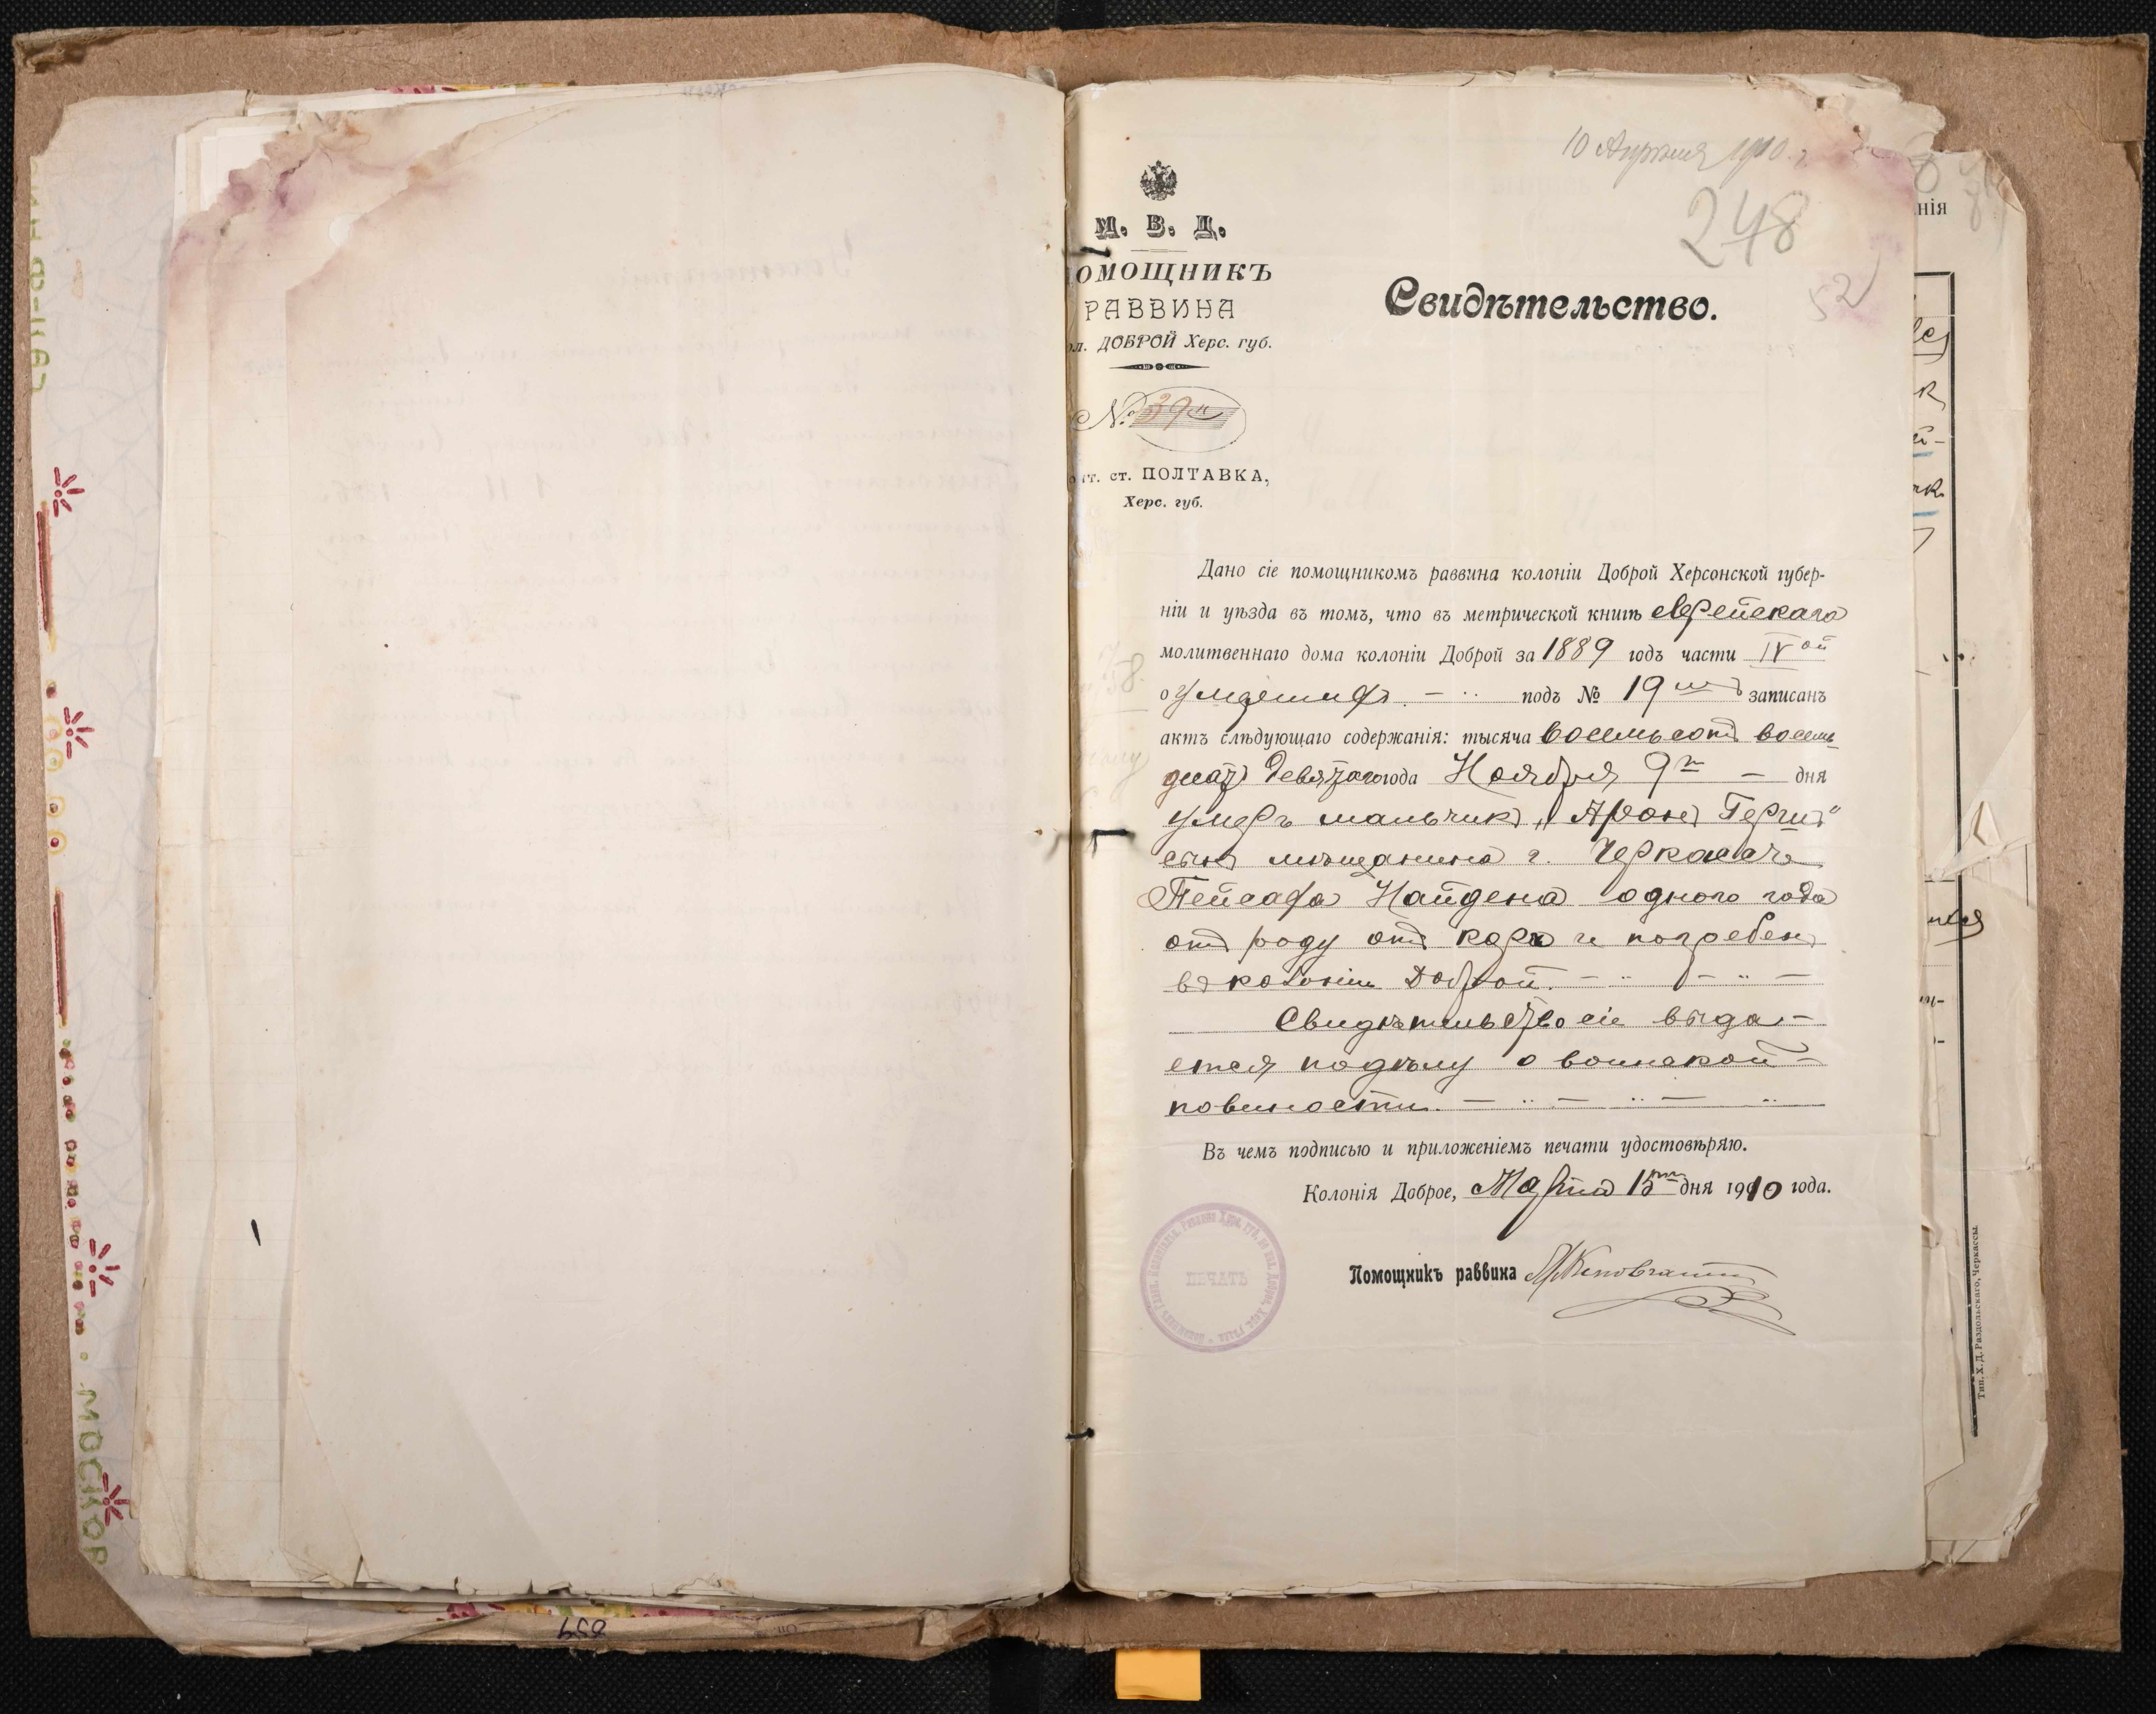 10 Апрѣля 1910 г.
248
52
М. В. Д.
ОМОЩНИКЪ
РАВВИНА
ол. ДОБРОЙ Херс. губ.
№ 39
чт. ст. ПОЛТАВКА,
Херс. губ.
Свидѣтельство.
Дано сіе помощникомъ раввина колоніи Доброй Херсонской губер-
ніи и уѣзда въ томъ, что въ метрической книгѣ еврейскаго
молитвеннаго дома колоніи Доброй за 1889 годъ части IVой
о умершихъ подъ № 19мъ записанъ
актъ слѣдующаго содержанія: тысяча восемьсотъ восемь
десятъ девятаго года Ноября 9го — дня
умеръ мальчикъ „Аронъ Гершъ"
сынъ мѣщанина г. Черкассъ
Пейсаха Найдена одного года
отъ роду отъ кори и погребенъ
въ колоніи Доброй.
Свидѣтельство сіе выда-
ется по дѣлу о воинской
повиности.
Въ чемъ подписью и приложеніемъ печати удостовѣряю.
Колонія Доброе, Марта 15го дня 1910 года.
ПЕЧАТЬ
Помощникъ раввина
нія
Тип. Х. Д. Раздольскаго, Черкассы.
МОСКОВ
859